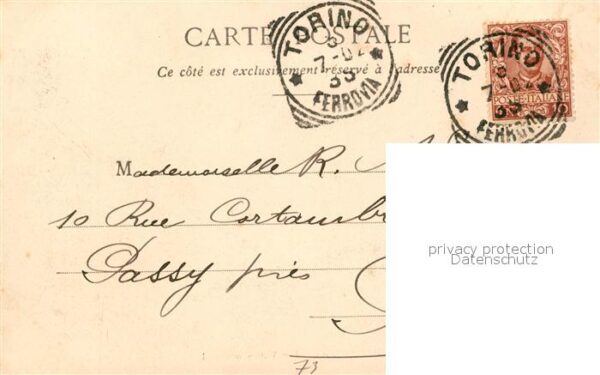 CARTE POSTALE
Ce côté est exclusivement réservé à l'adresse
TORINO
6
7-02
3S
FERROVIA
TORINO
6
7-02
3S
FERROVIA
POSTE ITALIANE
10
Mademoiselle R.
10 Rue Cortambr
Passy près
73
privacy protection
Datenschutz